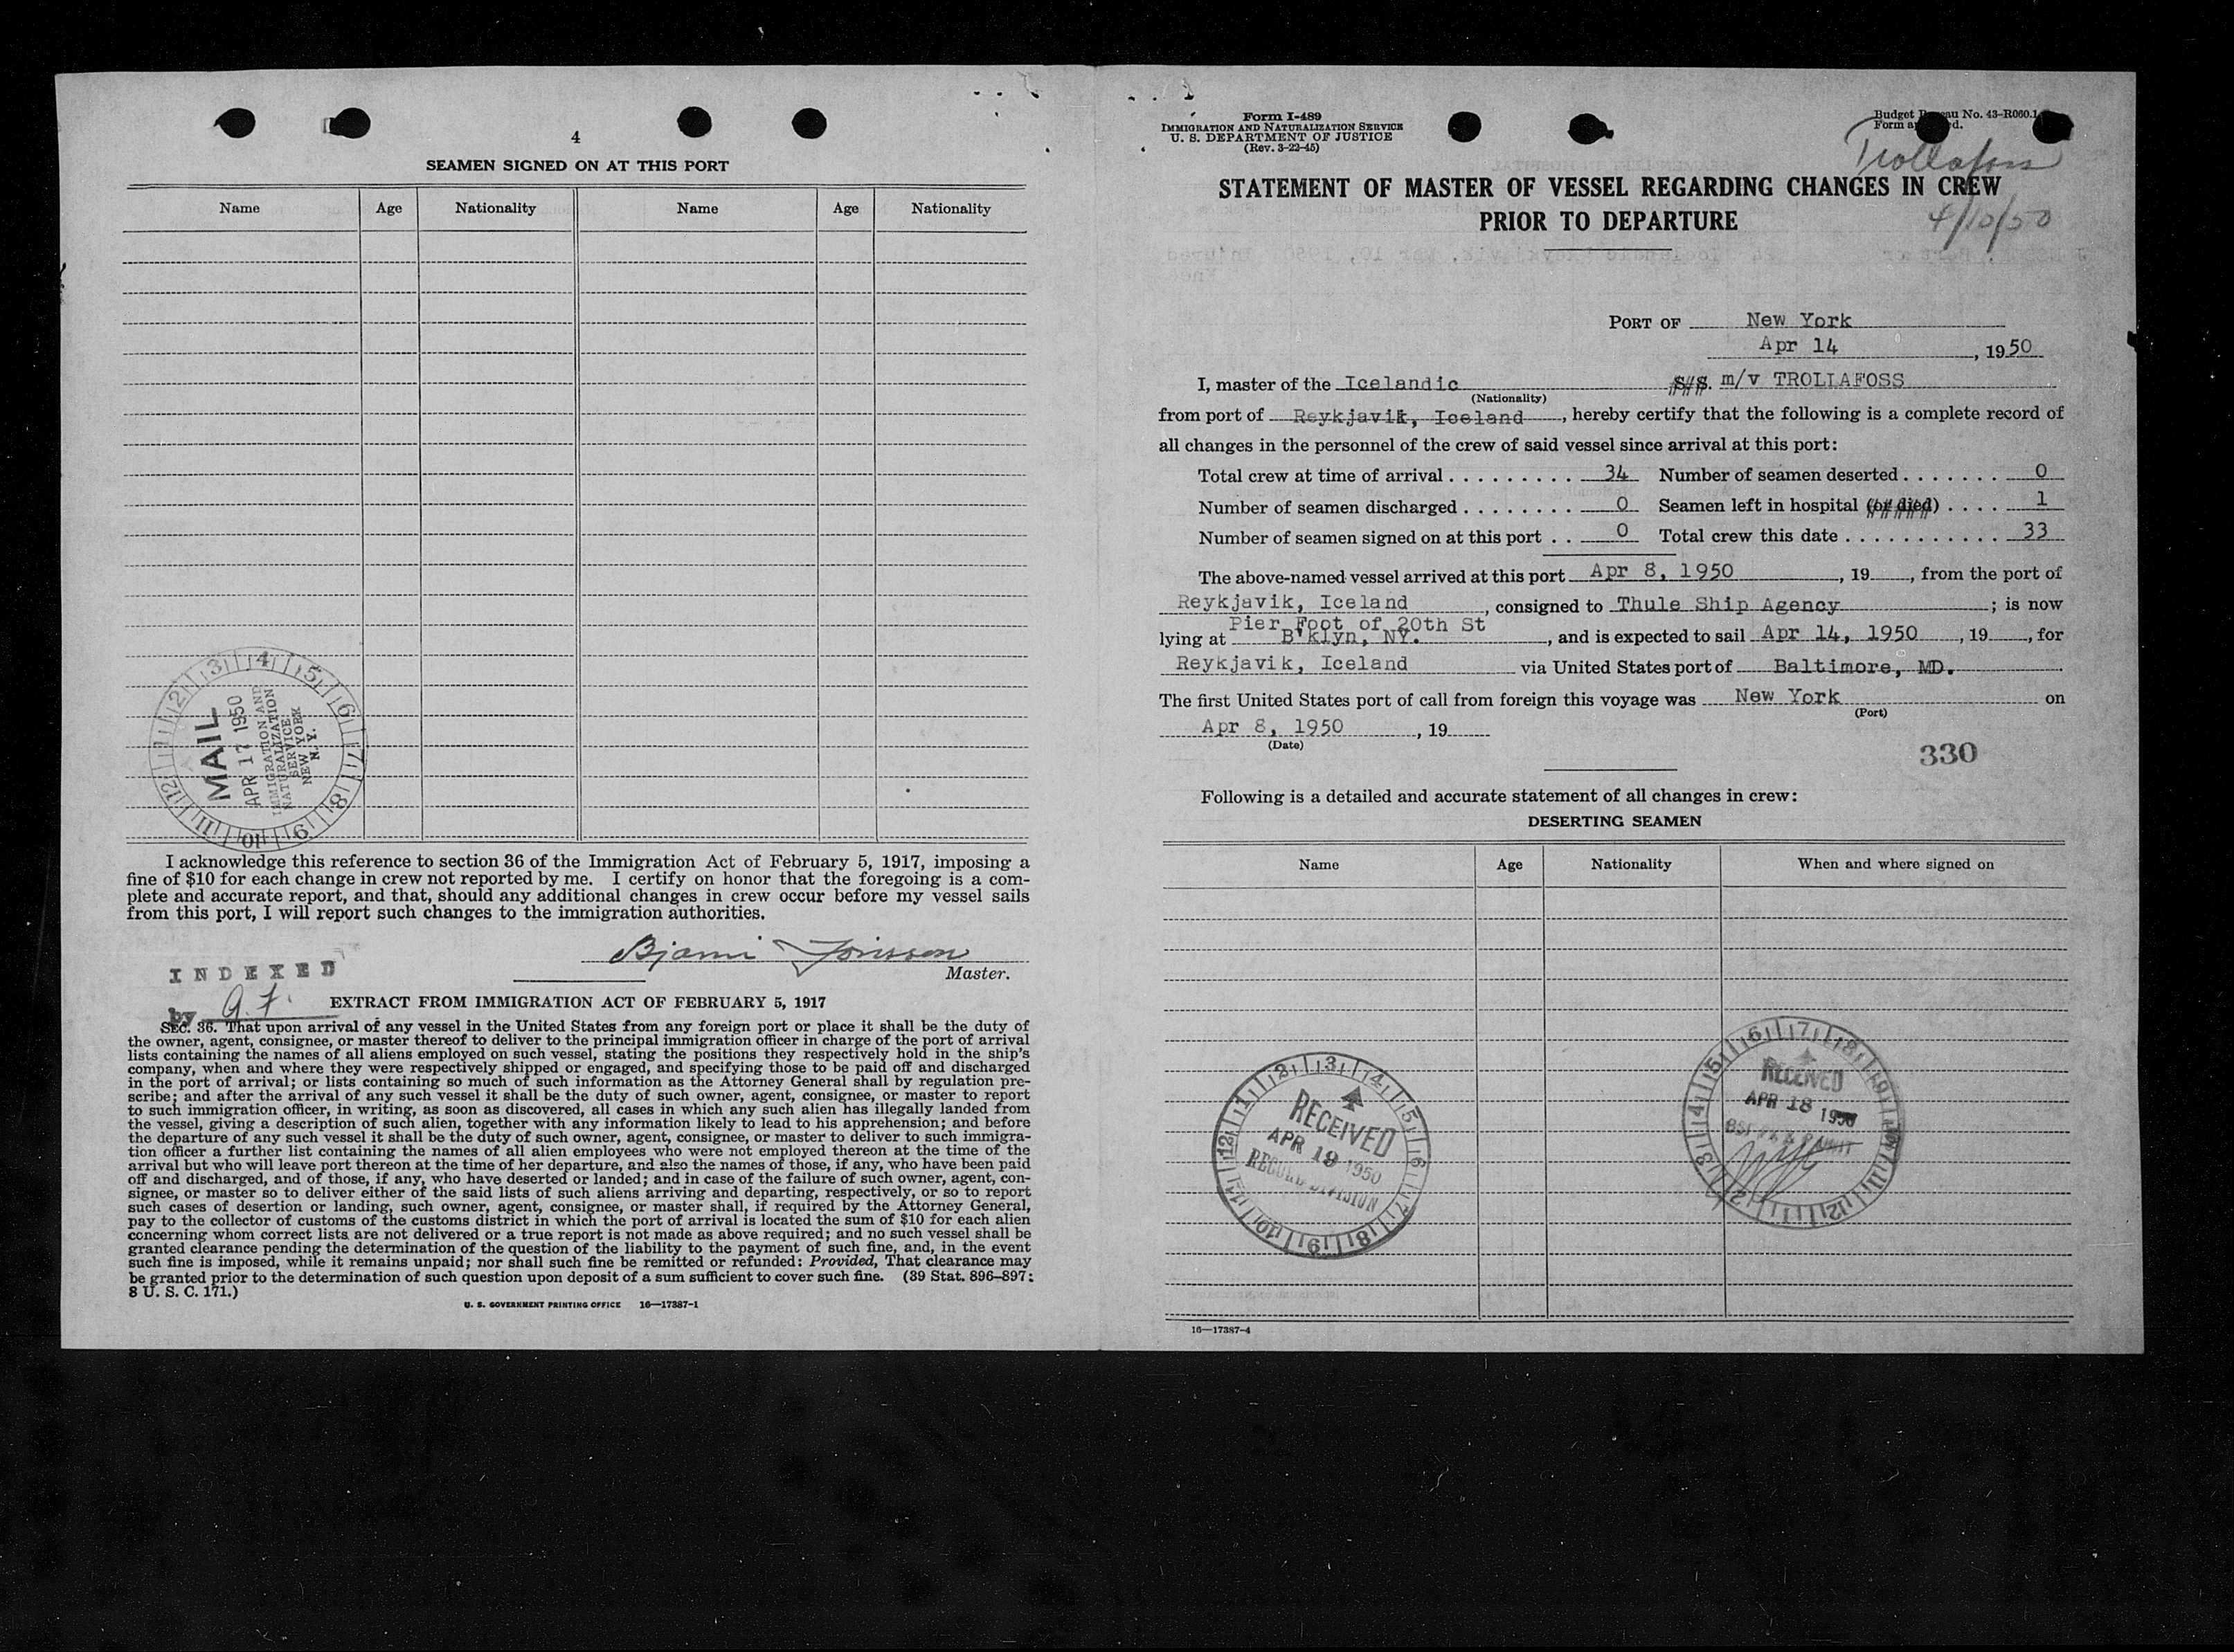 4
SEAMEN SIGNED ON AT THIS PORT
Name Age Nationality Name Age Nationality
MAIL
APR 17 1950
IMMIGRATION AND
NATURALIZATION
SERVICE
NEW YORK
N. Y.
I acknowledge this reference to section 36 of the Immigration Act of February 5, 1917, imposing a
fine of $10 for each change in crew not reported by me. I certify on honor that the foregoing is a com-
plete and accurate report, and that, should any additional changes in crew occur before my vessel sails
from this port, I will report such changes to the immigration authorities.
Bjarni Jonsson
Master.
INDEXED
by G. F.
EXTRACT FROM IMMIGRATION ACT OF FEBRUARY 5, 1917
SEC. 36. That upon arrival of any vessel in the United States from any foreign port or place it shall be the duty of
the owner, agent, consignee, or master thereof to deliver to the principal immigration officer in charge of the port of arrival
lists containing the names of all aliens employed on such vessel, stating the positions they respectively hold in the ship's
company, when and where they were respectively shipped or engaged, and specifying those to be paid off and discharged
in the port of arrival; or lists containing so much of such information as the Attorney General shall by regulation pre-
scribe; and after the arrival of any such vessel it shall be the duty of such owner, agent, consignee, or master to report
to such immigration officer, in writing, as soon as discovered, all cases in which any such alien has illegally landed from
the vessel, giving a description of such alien, together with any information likely to lead to his apprehension; and before
the departure of any such vessel it shall be the duty of such owner, agent, consignee, or master to deliver to such immigra-
tion officer a further list containing the names of all alien employees who were not employed thereon at the time of the
arrival but who will leave port thereon at the time of her departure, and also the names of those, if any, who have been paid
off and discharged, and of those, if any, who have deserted or landed; and in case of the failure of such owner, agent, con-
signee, or master so to deliver either of the said lists of such aliens arriving and departing, respectively, or so to report
such cases of desertion or landing, such owner, agent, consignee, or master shall, if required by the Attorney General,
pay to the collector of customs of the customs district in which the port of arrival is located the sum of $10 for each alien
concerning whom correct lists are not delivered or a true report is not made as above required; and no such vessel shall be
granted clearance pending the determination of the question of the liability to the payment of such fine, and, in the event
such fine is imposed, while it remains unpaid; nor shall such fine be remitted or refunded: Provided, That clearance may
be granted prior to the determination of such question upon deposit of a sum sufficient to cover such fine. (39 Stat. 896–897;
8 U. S. C. 171.)
U. S. GOVERNMENT PRINTING OFFICE 16—17387-1
Form I-489
IMMIGRATION AND NATURALIZATION SERVICE
U. S. DEPARTMENT OF JUSTICE
(Rev. 3-22-45)
Budget No. 43-R060.1
Form
Trollafoss
4/10/50
STATEMENT OF MASTER OF VESSEL REGARDING CHANGES IN CREW
PRIOR TO DEPARTURE
PORT OF New York
Apr 14, 1950
I, master of the Icelandic S.S. m/v TROLLAFOSS
(Nationality)
from port of Reykjavik, Iceland, hereby certify that the following is a complete record of
all changes in the personnel of the crew of said vessel since arrival at this port:
Total crew at time of arrival 34 Number of seamen deserted 0
Number of seamen discharged 0 Seamen left in hospital (or died) 1
Number of seamen signed on at this port 0 Total crew this date 33
The above-named vessel arrived at this port Apr 8, 1950, 19, from the port of
Reykjavik, Iceland, consigned to Thule Ship Agency; is now
lying at Pier Foot of 20th St B'klyn, NY., and is expected to sail Apr 14, 1950, 19, for
Reykjavik, Iceland via United States port of Baltimore, MD.
The first United States port of call from foreign this voyage was New York on
(Port)
Apr 8, 1950, 19
(Date)
330
Following is a detailed and accurate statement of all changes in crew:
DESERTING SEAMEN
Name Age Nationality When and where signed on
RECEIVED
APR 19 1950
RECORD DIVISION
RECEIVED
APR 18 1950
16—17387-4